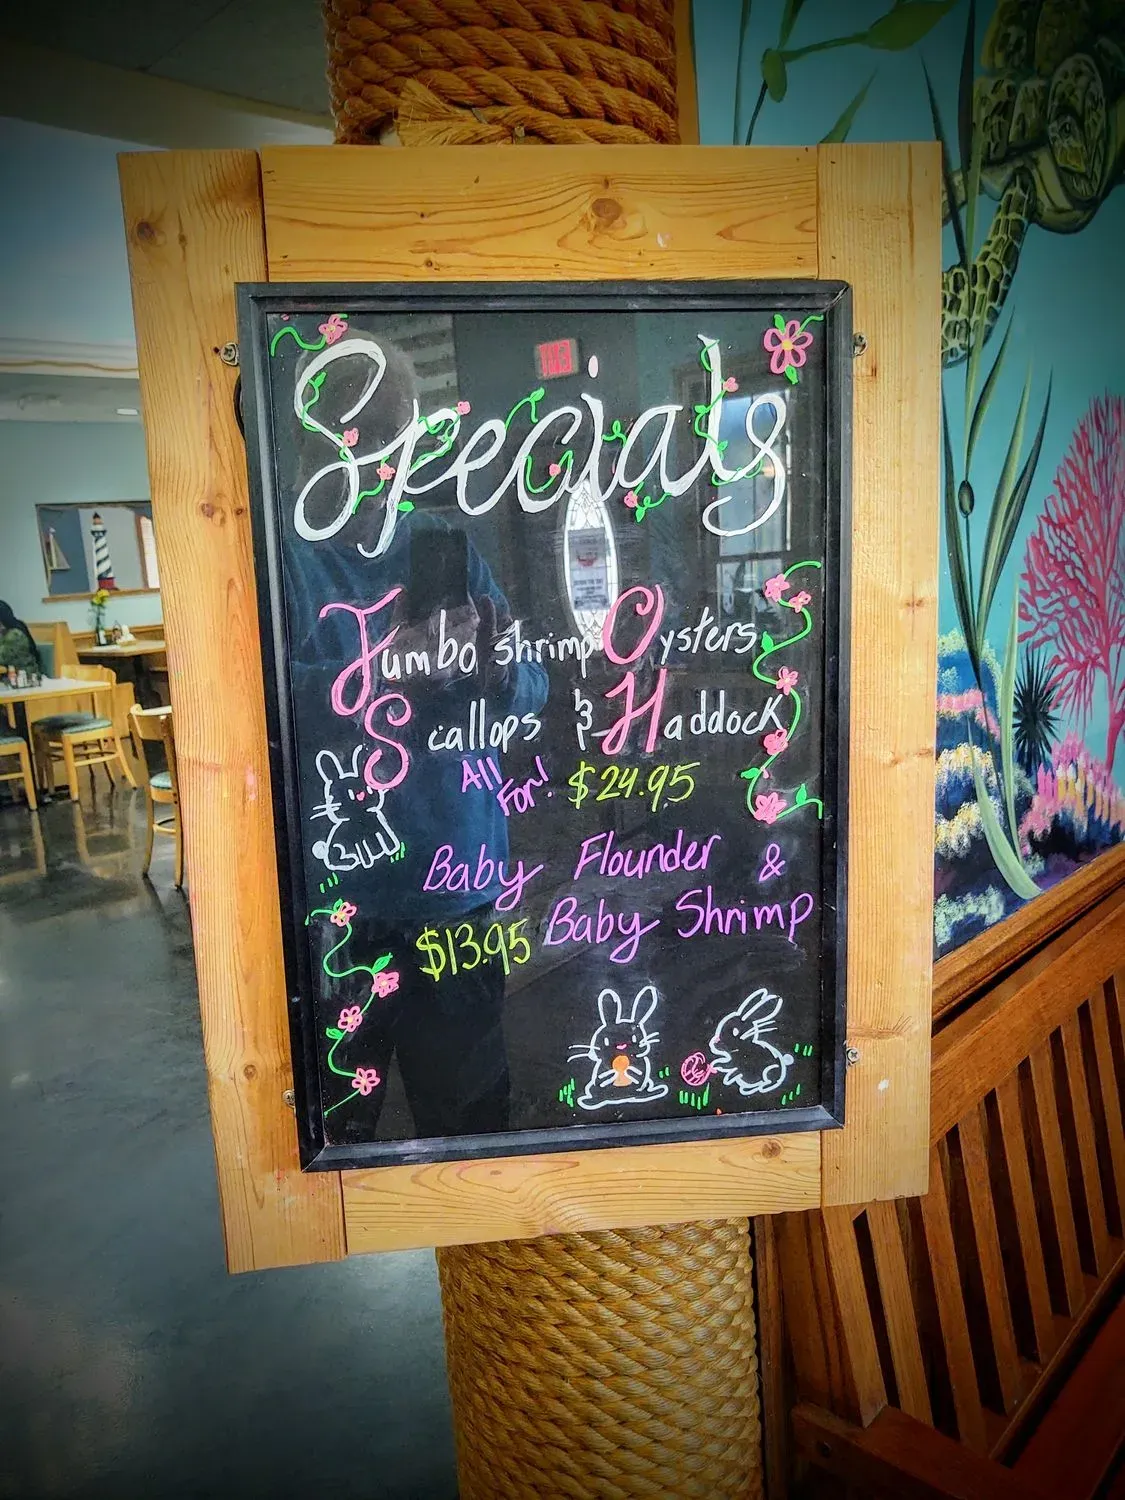 Specials
Jumbo shrimp Oysters
Scallops & Haddock
All For! $24.95
Baby Flounder &
$13.95 Baby Shrimp